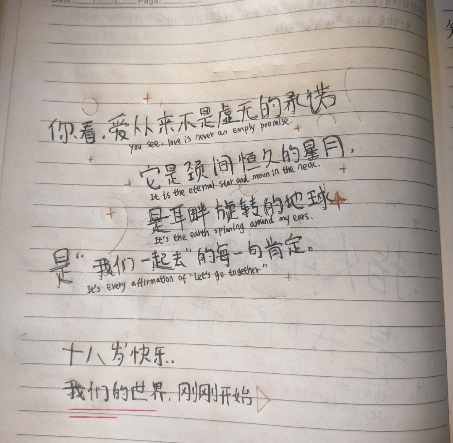 你看,爱从来不是虚无的承诺
you see, love is never an empty promise.
它是颈间恒久的星月,
It is the eternal star and moon in the neck.
是耳畔旋转的地球
It's the earth spinning around my ears.
是“我们一起去”的每一句肯定。
It's every affirmation of "Let's go together"
十八岁快乐..
我们的世界,刚刚开始